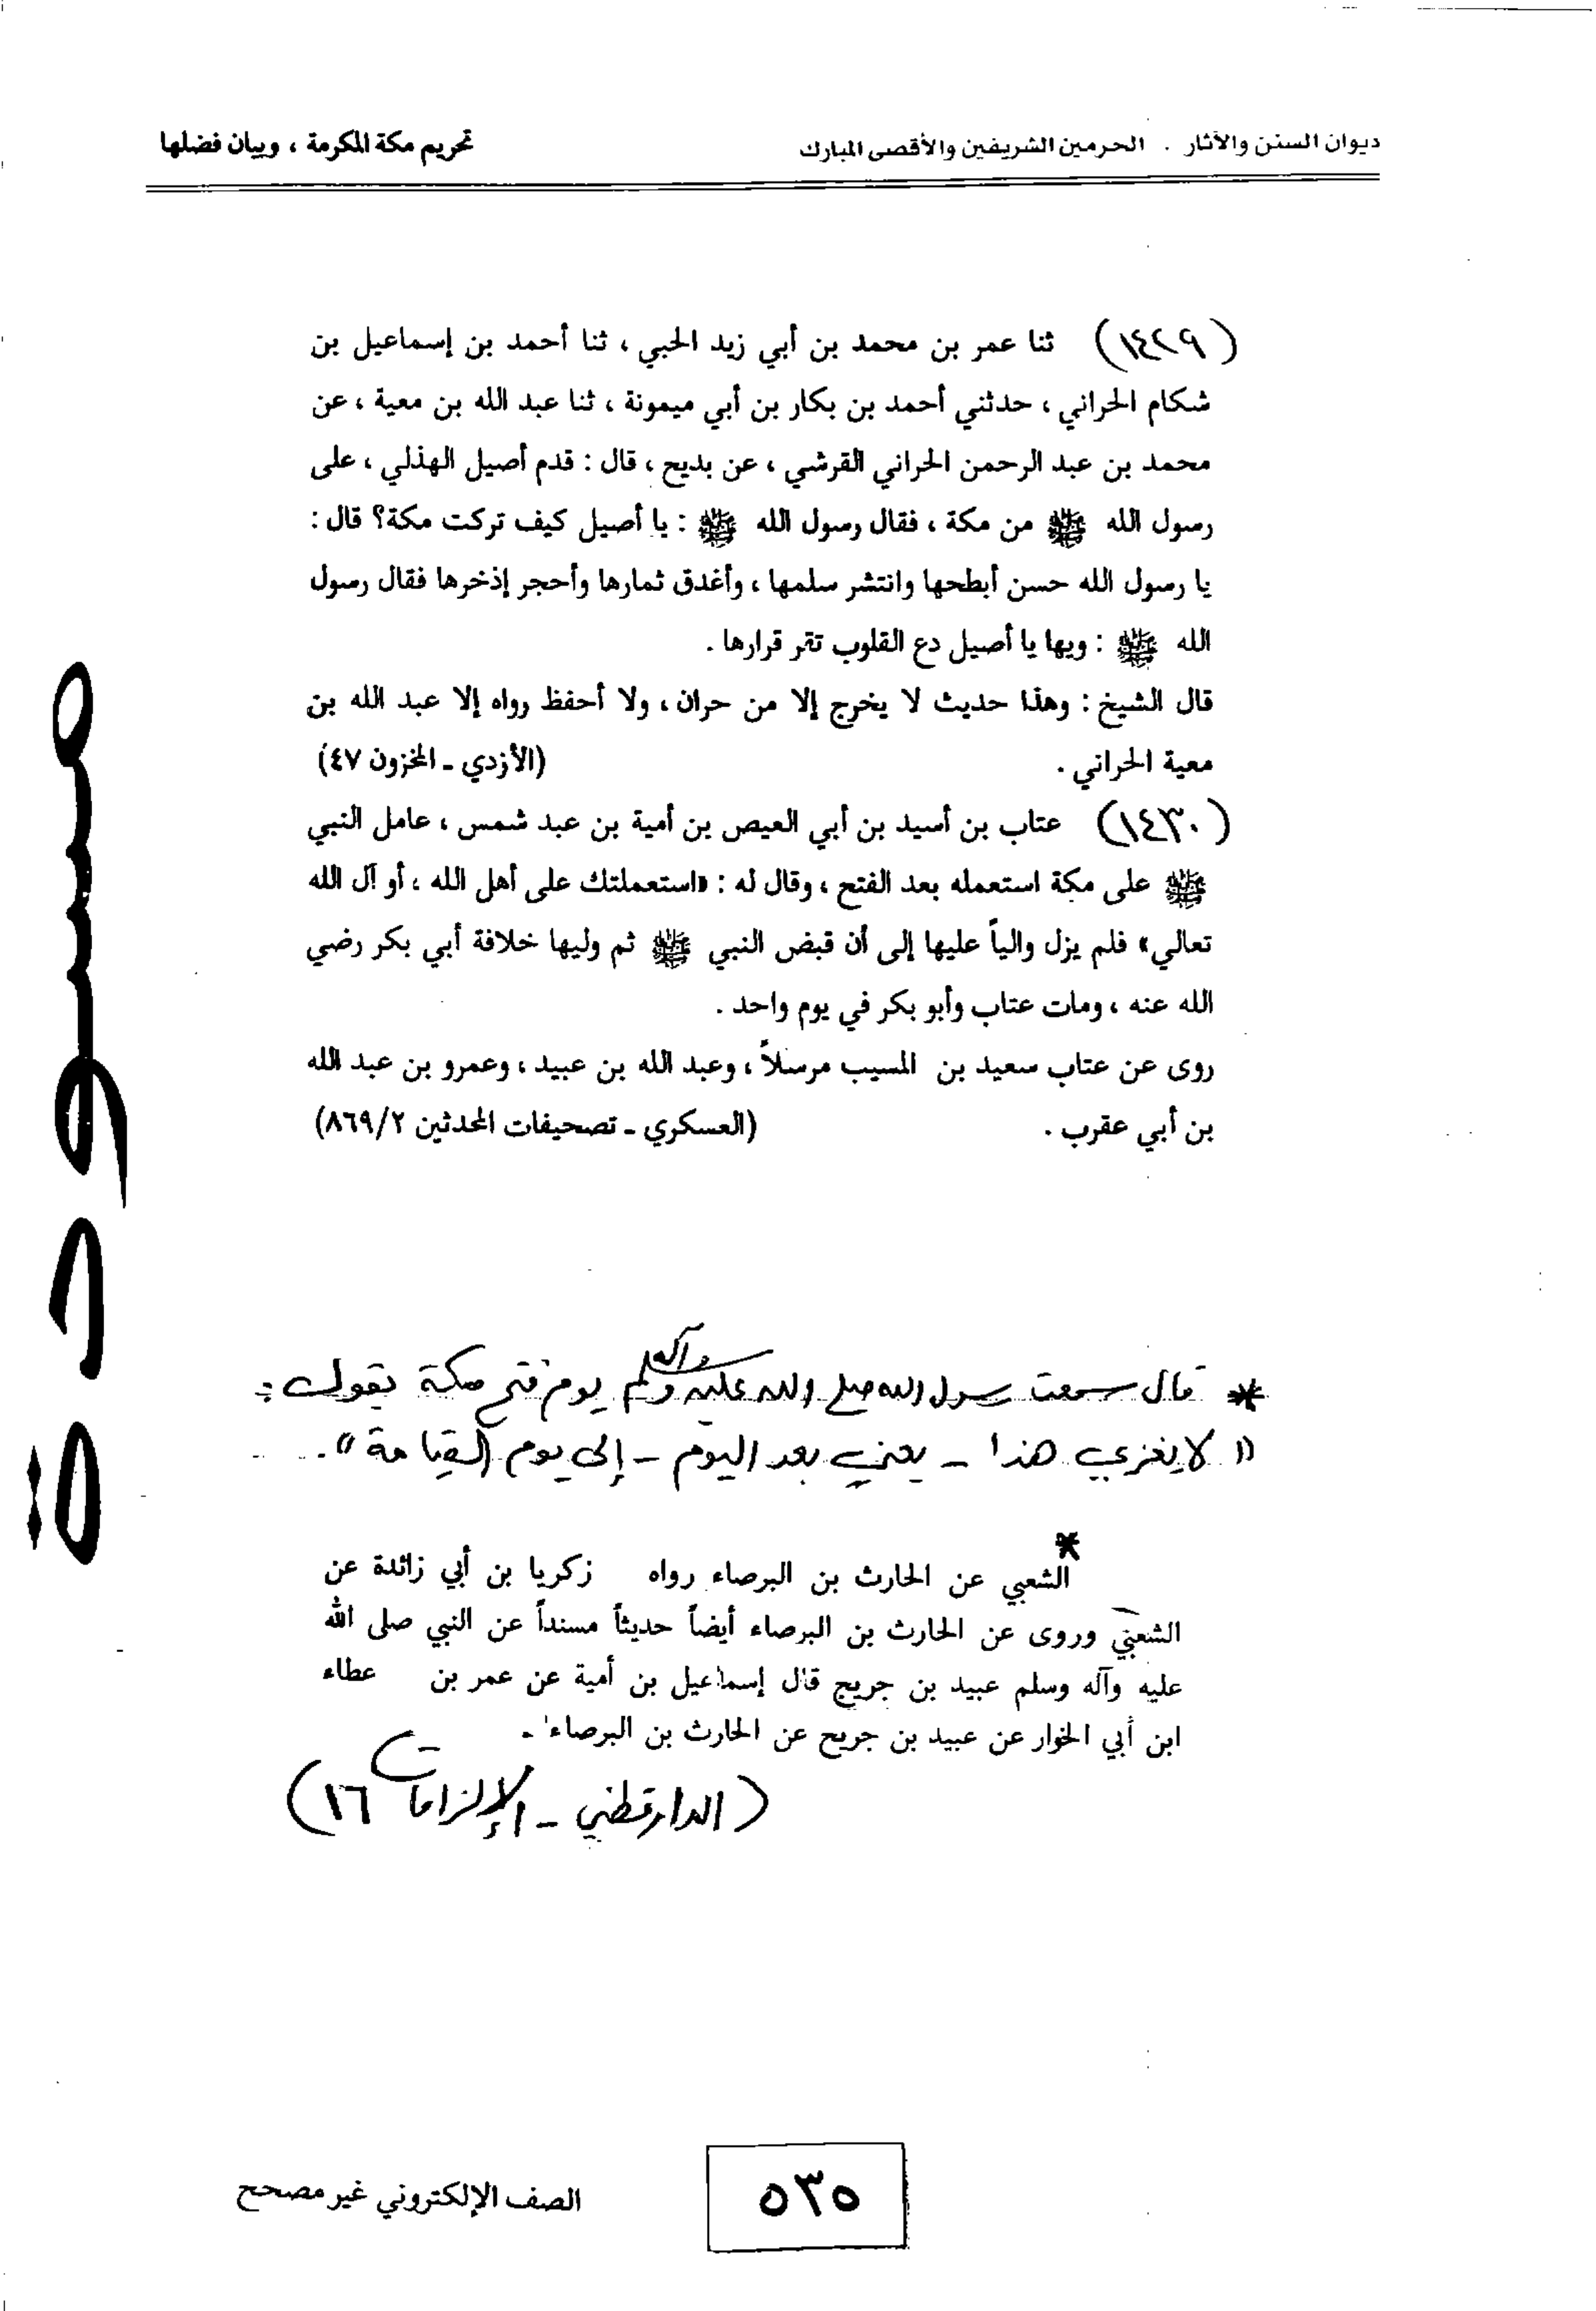 ديوان السنن والآثار . الحرمين الشريفين والأقصى المبارك
تحريم مكة المكرمة ، وبيان فضلها
(١٤٢٩) ثنا عمر بن محمد بن أبي زيد الحبي ، ثنا أحمد بن إسماعيل بن
شكام الحراني ، حدثني أحمد بن بكار بن أبي ميمونة ، ثنا عبد الله بن معية ، عن
محمد بن عبد الرحمن الحراني القرشي ، عن بديح ، قال : قدم أصيل الهذلي ، على
رسول الله ﷺ من مكة ، فقال رسول الله ﷺ : يا أصيل كيف تركت مكة؟ قال :
يا رسول الله حسن أبطحها وانتشر سلمها ، وأغدق ثمارها وأحجر إذخرها فقال رسول
الله ﷺ : ويها يا أصيل دع القلوب تقر قرارها .
قال الشيخ : وهذا حديث لا يخرج إلا من حران ، ولا أحفظ رواه إلا عبد الله بن
معية الحراني . (الأزدي ـ المخزون ٤٧)
(١٤٣٠) عتاب بن أسيد بن أبي العيص بن أمية بن عبد شمس ، عامل النبي
ﷺ على مكة استعمله بعد الفتح ، وقال له : «استعملتك على أهل الله ، أو آل الله
تعالي» فلم يزل والياً عليها إلى أن قبض النبي ﷺ ثم وليها خلافة أبي بكر رضي
الله عنه ، ومات عتاب وأبو بكر في يوم واحد .
روى عن عتاب سعيد بن المسيب مرسلاً ، وعبد الله بن عبيد ، وعمرو بن عبد الله
بن أبي عقرب . (العسكري ـ تصحيفات المحدثين ٨٦٩/٢)
* قال سمعت رسول الله صلى الله عليه وآله وسلم يوم فتح مكة يقول :
«لا يغزى هذا ـ يعني بعد اليوم ـ إلى يوم القيامة» .
* الشعبي عن الحارث بن البرصاء رواه زكريا بن أبي زائدة عن
الشعبي وروى عن الحارث بن البرصاء أيضاً حديثاً مسنداً عن النبي صلى الله
عليه وآله وسلم عبيد بن جريج قال إسماعيل بن أمية عن عمر بن عطاء
ابن أبي الخوار عن عبيد بن جريح عن الحارث بن البرصاء .
(الدارقطني ـ الإلزامات ١٦)
مسودة
٥٣٥
الصف الإلكتروني غير مصحح